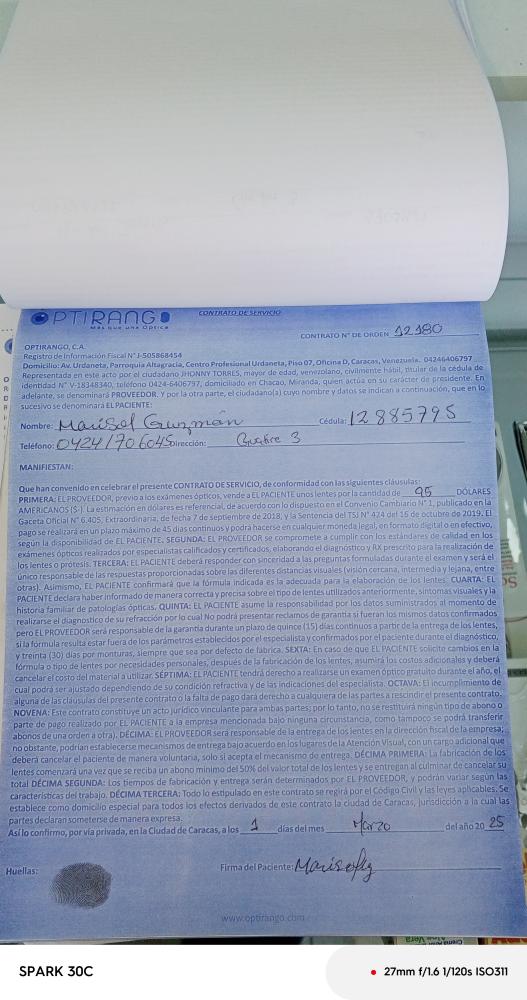 OPTIRANGO
Más que una Óptica
CONTRATO DE SERVICIO
CONTRATO N° DE ORDEN 12180
OPTIRANGO, C.A.
Registro de Información Fiscal N° J-505868454
Domicilio: Av. Urdaneta, Parroquia Altagracia, Centro Profesional Urdaneta, Piso 07, Oficina D, Caracas, Venezuela. 04246406797
Representada en este acto por el ciudadano JHONNY TORRES, mayor de edad, venezolano, civilmente hábil, titular de la cédula de
identidad N° V-18348340, teléfono 0424-6406797, domiciliado en Chacao, Miranda, quien actúa en su carácter de presidente. En
adelante, se denominará PROVEEDOR. Y por la otra parte, el ciudadano(a) cuyo nombre y datos se indican a continuación, que en lo
sucesivo se denominará EL PACIENTE:
Nombre: Marisol Guzmán Cédula: 12885795
Teléfono: 04241706045 Dirección: 3
MANIFIESTAN:
Que han convenido en celebrar el presente CONTRATO DE SERVICIO, de conformidad con las siguientes cláusulas:
PRIMERA: EL PROVEEDOR, previo a los exámenes ópticos, vende a EL PACIENTE unos lentes por la cantidad de 95 DÓLARES
AMERICANOS ($-). La estimación en dólares es referencial, de acuerdo con lo dispuesto en el Convenio Cambiario N° 1, publicado en la
Gaceta Oficial N° 6.405, Extraordinaria, de fecha 7 de septiembre de 2018, y la Sentencia del TSJ N° 424 del 16 de octubre de 2019. El
pago se realizará en un plazo máximo de 45 días continuos y podrá hacerse en cualquier moneda legal, en formato digital o en efectivo,
según la disponibilidad de EL PACIENTE. SEGUNDA: EL PROVEEDOR se compromete a cumplir con los estándares de calidad en los
exámenes ópticos realizados por especialistas calificados y certificados, elaborando el diagnóstico y RX prescrito para la realización de
los lentes o prótesis. TERCERA: EL PACIENTE deberá responder con sinceridad a las preguntas formuladas durante el examen y será el
único responsable de las respuestas proporcionadas sobre las diferentes distancias visuales (visión cercana, intermedia y lejana, entre
otras). Asimismo, EL PACIENTE confirmará que la fórmula indicada es la adecuada para la elaboración de los lentes. CUARTA: EL
PACIENTE declara haber informado de manera correcta y precisa sobre el tipo de lentes utilizados anteriormente, síntomas visuales y la
historia familiar de patologías ópticas. QUINTA: EL PACIENTE asume la responsabilidad por los datos suministrados al momento de
realizarse el diagnostico de su refracción por lo cual No podrá presentar reclamos de garantía si fueran los mismos datos confirmados
pero EL PROVEEDOR será responsable de la garantía durante un plazo de quince (15) días continuos a partir de la entrega de los lentes,
si la formula resulta estar fuera de los parámetros establecidos por el especialista y confirmados por el paciente durante el diagnóstico,
y treinta (30) días por monturas, siempre que sea por defecto de fabrica. SEXTA: En caso de que EL PACIENTE solicite cambios en la
fórmula o tipo de lentes por necesidades personales, después de la fabricación de los lentes, asumirá los costos adicionales y deberá
cancelar el costo del material a utilizar. SÉPTIMA: EL PACIENTE tendrá derecho a realizarse un examen óptico gratuito durante el año, el
cual podrá ser ajustado dependiendo de su condición refractiva y de las indicaciones del especialista. OCTAVA: El incumplimiento de
alguna de las cláusulas del presente contrato o la falta de pago dará derecho a cualquiera de las partes a rescindir el presente contrato.
NOVENA: Este contrato constituye un acto jurídico vinculante para ambas partes; por lo tanto, no se restituirá ningún tipo de abono o
parte de pago realizado por EL PACIENTE a la empresa mencionada bajo ninguna circunstancia, como tampoco se podrá transferir
abonos de una orden a otra). DÉCIMA: EL PROVEEDOR será responsable de la entrega de los lentes en la dirección fiscal de la empresa;
no obstante, podrían establecerse mecanismos de entrega bajo acuerdo en los lugares de la Atención Visual, con un cargo adicional que
deberá cancelar el paciente de manera voluntaria, solo si acepta el mecanismo de entrega. DÉCIMA PRIMERA: La fabricación de los
lentes comenzará una vez que se reciba un abono mínimo del 50% del valor total de los lentes y se entregan al culminar de cancelar su
total DÉCIMA SEGUNDA: Los tiempos de fabricación y entrega serán determinados por EL PROVEEDOR, y podrán variar según las
características del trabajo. DÉCIMA TERCERA: Todo lo estipulado en este contrato se regirá por el Código Civil y las leyes aplicables. Se
establece como domicilio especial para todos los efectos derivados de este contrato la ciudad de Caracas, jurisdicción a la cual las
partes declaran someterse de manera expresa.
Así lo confirmo, por vía privada, en la Ciudad de Caracas, a los 1 días del mes Marzo del año 20 25
Huellas:
Firma del Paciente:
www.optirango.com
SPARK 30C
27mm f/1.6 1/120s ISO311